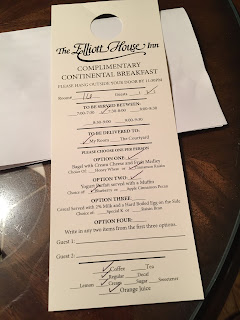 The Elliott House Inn
COMPLIMENTARY
CONTINENTAL BREAKFAST
PLEASE HANG OUTSIDE YOUR DOOR BY 11:00PM
Room# Guests
TO BE SERVED BETWEEN:
7:00-7:30 7:30-8:00 8:00-8:30
8:30-9:00 9:00-9:30
TO BE DELIVERED TO:
My Room The Courtyard
PLEASE CHOOSE ONE PER PERSON
OPTION ONE:
Bagel with Cream Cheese and Fruit Medley
Choice Of Honey Wheat or Cinnamon Raisin
OPTION TWO:
Yogurt Parfait served with a Muffin
Choice of Blueberry or Apple Cinnamon Pecan
OPTION THREE:
Cereal Served with 2% Milk and a Hard Boiled Egg on the Side
Choice of Special K or Raisin Bran
OPTION FOUR:
Write in any two items from the first three options.
Guest 1:
Guest 2:
Coffee Tea
Regular Decaf
Lemon Cream Sugar Sweetener
Orange Juice